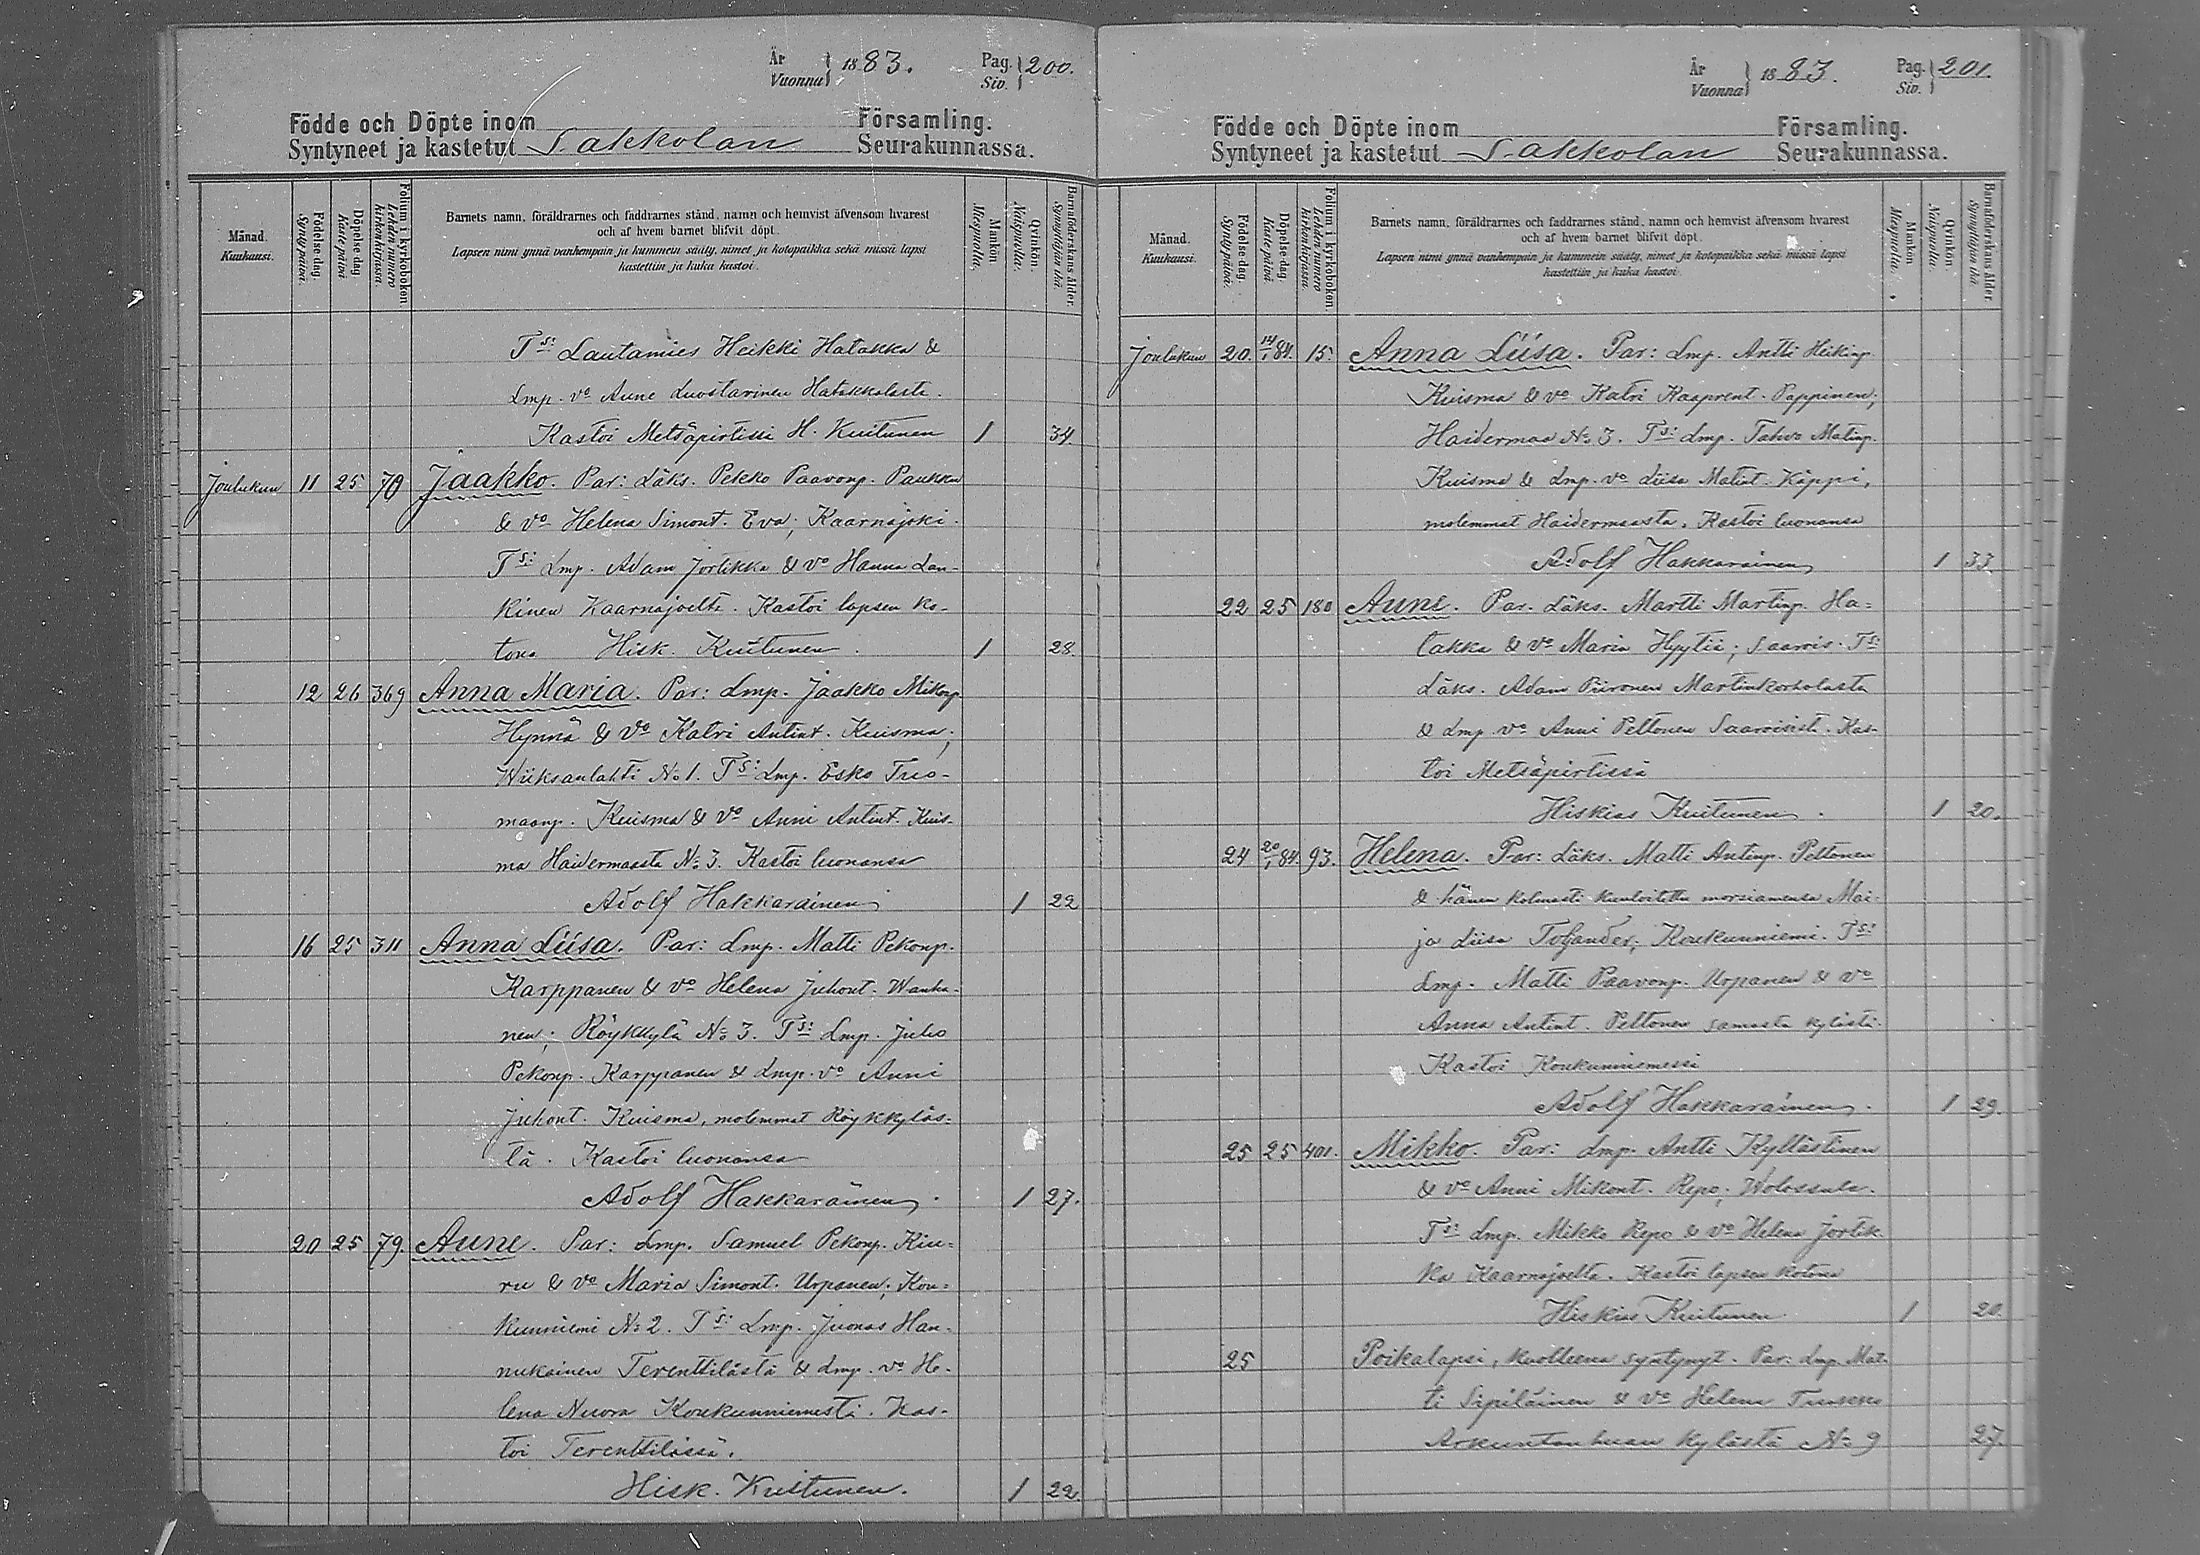 År
Vuonna 1883.
Pag.
Siv. 200.
Födde och Döpte inom Församling.
Syntyneet ja kastetut Sakkolan Seurakunnassa.
Månad.
Kuukausi.
Födelse-dag.
Syntypäivä.
Döpelse-dag.
Kastepäivä
Folium i kyrkoboken.
Lehden numero kirkonkirjassa.
Barnets namn, föräldrarnes och faddrarnes stånd, namn och hemvist äfvensom hvarest
och af hvem barnet blifvit döpt.
Lapsen nimi ynnä vanhempain ja kummein sääty, nimet ja kotopaikka sekä missä lapsi
kastettiin ja kuka kastoi.
Mankön
Miespuolia.
Qvinkön.
Naispuolia.
Barnaföderskans ålder.
Synnyttäjän ikä.
Ts: Lautamies Heikki Hatakka &
Lmp. vo Aune Luostarinen Hatakkalasta.
Kastoi Metsäpirtissä H. Kuitunen 1 34
Joulukuu 11 25 70 Jaakko. Par: Läks. Pekko Paavonp. Paukku
& vo Helena Simont. Eva; Kaarnajoki.
Ts: Lmp. Adam Jortikka & vo Hanna Lan-
kinen Kaarnajoelta. Kastoi lapsen ko-
tona Hisk. Kuitunen. 1 28
12 26 369 Anna Maria. Par: Lmp. Jaakko Mikonp.
Hynnä & vo Katri Antint. Kuisma;
Wiiksanlahti No 1. Ts: Lmp. Esko Tuo-
maanp. Kuisma & vo Anni Antint. Kuis-
ma Haidermaasta No 3. Kastoi luonansa
Adolf Hakkarainen 1 22
16 25 311 Anna Liisa. Par: Lmp. Matti Pekonp.
Karppanen & vo Helena Juhont. Wanha-
nen; Röykkylä No 3. Ts: Lmp. Juho
Pekonp. Karppanen & Lmp. vo Anni
Juhont. Kuisma, molemmat Röykkyläs-
tä. Kastoi luonansa
Adolf Hakkarainen. 1 27.
20 25 79. Aune. Par: Lmp. Samuel Pekonp. Kiu-
ru & vo Maria Simont. Urpanen; Kou-
kunniemi No 2. Ts: Lmp. Juonas Han-
nukainen Terenttilästä & Lmp. vo He-
lena Nuora Koukunniemestä. Kas-
toi Terenttilässä.
Hisk. Kuitunen. 1 22
År
Vuonna 1883.
Pag.
Siv. 201.
Födde och Döpte inom Församling.
Syntyneet ja kastetut Sakkolan Seurakunnassa.
Månad.
Kuukausi.
Födelse-dag.
Syntypäivä.
Döpelse-dag.
Kastepäivä
Folium i kyrkoboken.
Lehden numero kirkonkirjassa.
Barnets namn, föräldrarnes och faddrarnes stånd, namn och hemvist äfvensom hvarest
och af hvem barnet blifvit döpt.
Lapsen nimi ynnä vanhempain ja kummein sääty, nimet ja kotopaikka sekä missä lapsi
kastettiin ja kuka kastoi.
Mankön
Miespuolia.
Qvinkön.
Naispuolia.
Barnaföderskans ålder.
Synnyttäjän ikä
Joulukuu 20. 14/1 84. 15. Anna Liisa. Par: Lmp. Antti Heikinp.
Kuisma & vo Katri Kaaprent. Pappinen;
Haidermaa No 3. Ts: Lmp. Tahvo Matinp.
Kuisma & Lmp. vo Liisa Matint. Käppi,
molemmat Haidermaasta. Kastoi luonansa
Adolf Hakkarainen 1 33
22 25 180 Aune. Par. Läks. Martti Martinp. Ha-
takka & vo Maria Hyytiä; Saarois. Ts:
Läks. Adam Piironen Martinkorholasta
& Lmp. vo Anni Peltonen Saaroisista. Kas-
toi Metsäpirtissä
Hiskias Kuitunen. 1 20.
24 20/1 84. 93. Helena. Par: Läks. Matti Antinp. Peltonen
& hänen kolmasti kuuloitettu morsiamensa Mai-
ja Liisa Toljander; Koukunniemi. Ts:
Lmp. Matti Paavonp. Urpanen & vo
Anna Antint. Peltonen samasta kylästä.
Kastoi Koukunniemessä
Adolf Hakkarainen. 1 29.
25 25 401. Mikko. Par: Lmp. Antti Kyllästinen
& vo Anni Mikont. Repo; Wolossula.
Ts: Lmp. Mikko Repo & vo Helena Jortik-
ka Kaarnajoelta. Kastoi lapsen kotona
Hiskias Kuitunen 1 20.
25 Poikalapsi, kuolleena syntynyt. Par: Lmp. Mat-
ti Sipiläinen & vo Helena
kylästä No 9 27.